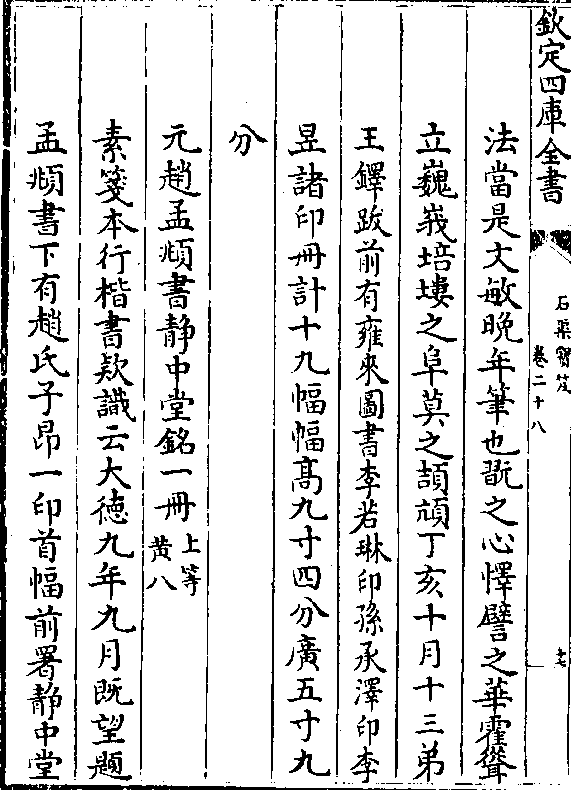 欽定四庫全書
石渠寶笈
卷二十八
十七
法當是文敏晚年筆也翫之心懌譬之華霍聳
立巍峩培塿之阜莫之頡頏丁亥十月十三弟
王鐸跋前有雍來圖書李若琳印孫承澤印李
昱諸印冊計十九幅幅髙九寸四分廣五寸九
分
元趙孟頫書静中堂銘一冊 上等
黄八
素箋本行楷書欵識云大德九年九月既望題
孟頫書下有趙氏子昂一印首幅前署静中堂